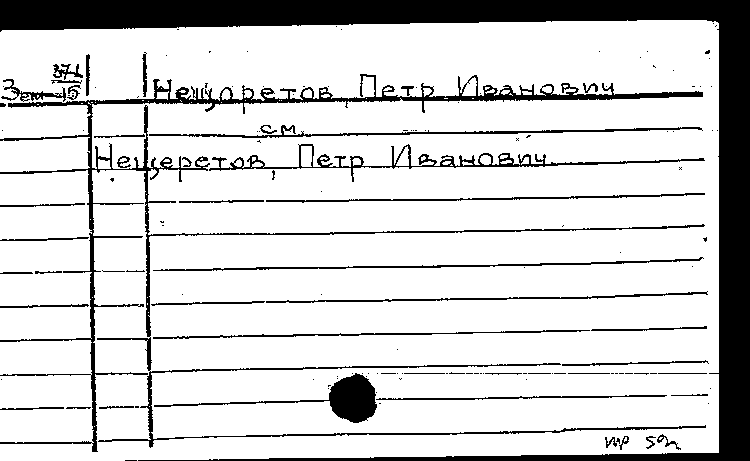 371
Зем-15 Нещоретов, Петр Иванович
см.
Нещеретов, Петр Иванович